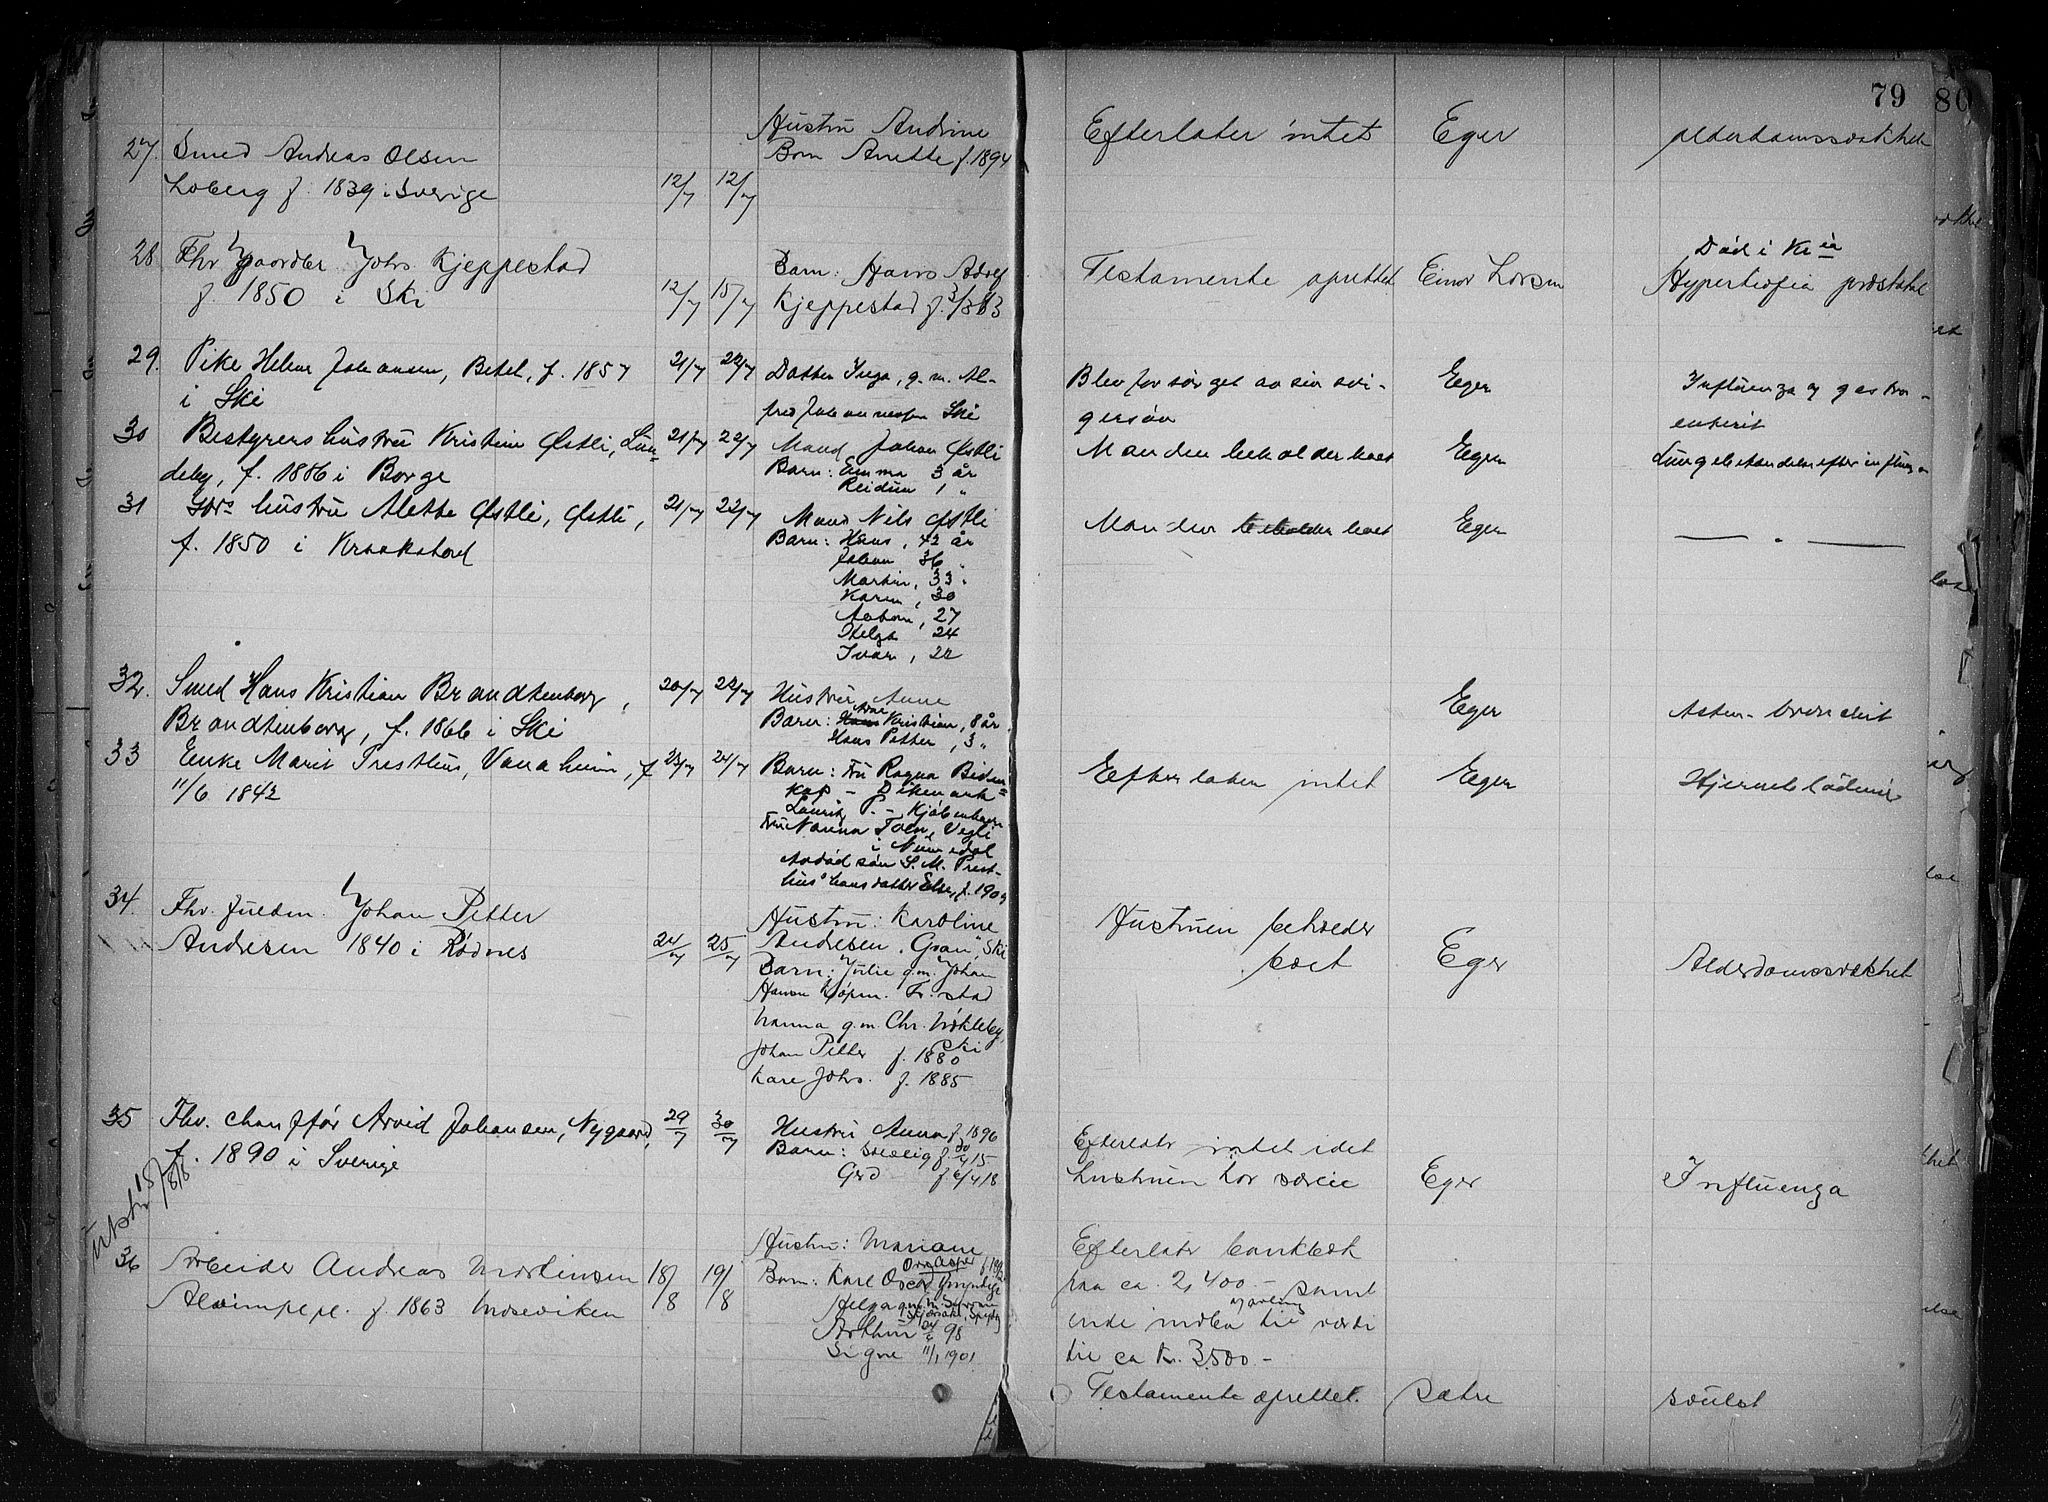 79
80
27. Smed Andreas Olsen
Loberg f. 1839 i Sverige
12/7 12/7
Hustru Andrine
Barn Anette f. 1894
Efterlater intet
Eger
Alderdomssvakhet
28 Fhv gaardbr Johs Kjeppestad
f. 1850 i Ski
12/7 15/7
Barn: Hans Adolf
Kjeppestad f.
Testamente oprettet
Einar Larsen
Død i Kr ia
Hypertrofia prostatae
29. Pike Helene Johansen, Betel, f. 1857
i Ski
21/7 22/7
Datter Inga, g. m. Al-
fred Johannessen Ski
Blev forsörget av sin svi-
gersön
Eger
Influenza og gastro-
enterit
30 Bestyrers hustru Kristine Østli, Lun-
deby, f. 1886 i Borge
21/7 22/7
Mand Johan Østli
Barn: Emma 3 år
Reidun 1 "
Manden beholder boet
Eger
Lungebetændelse efter influenza
31 Grs hustru Alette Østli, Østli,
f. 1850 i Kraakstad
21/7 22/7
Mand Nils Østli
Barn: Hans, 42 år
Johan 36 "
Martin, 33 "
Karen, 30
Anton, 27
Helga 24
Ivar, 22
Manden beholder boet
Eger
— " —
32. Smed Hans Kristian Brandtenborg,
Brandtenborg, f. 1866 i Ski
20/7 22/7
Hustru Anne
Barn: Kristian, 8 år
Hans Petter, 3 "
Eger
Astm. bronchit
33 Enke Marit Presthus, Vanaheim, f
11/6 1842
23/7 24/7
Barn: Fru Ragna Biden-
kap – Dikemark
Lauritz P. – Kjøbenhavn
Fru Nanna Toen, Vegli
i Numedal
Avdöd sön S. M. Prest-
hus' hans datter Else, f. 1909
Efterlater intet
Eger
Hjerneblödning
34. Fhv. fuldm. Johan Petter
Andresen 1840 i Rødnes
24/7 25/7
Hustru: Karoline
Andresen "Gran", Ski
Barn: Julie g.m. Johan
Hansen Kjøpm. Fr.stad
Nanna g.m. Chr. Vakleby,
Ski
Johan Petter f. 1880
Kare Johs. f. 1885
Hustruen beholder
boet
Eger
Alderdomssvakhet
35 Fhv. chafför Arvid Johansen, Nygaard,
f. 1890 i Sverige
29/7 30/7
Hustru Anna f. 1896
Barn: Solveig f. 15
Gerd f 6/4 18
Efterlatr intet idet
hustruen har særeie
Eger
Influenza
15/8 18
36 Arbeider Andreas Martinsen
Alvimpepl. f. 1863 Mosseviken
18/8 19/8
Hustru: Mariane
Barn: Karl Oscar
Helga
Arthur 98
Signe 11/1 1901
Efterlatr bankbok
paa ca. 2,400.– samt
indbo til værdi
til ca Kr. 3500.–
Testamente oprettet.
Sætre
svulst